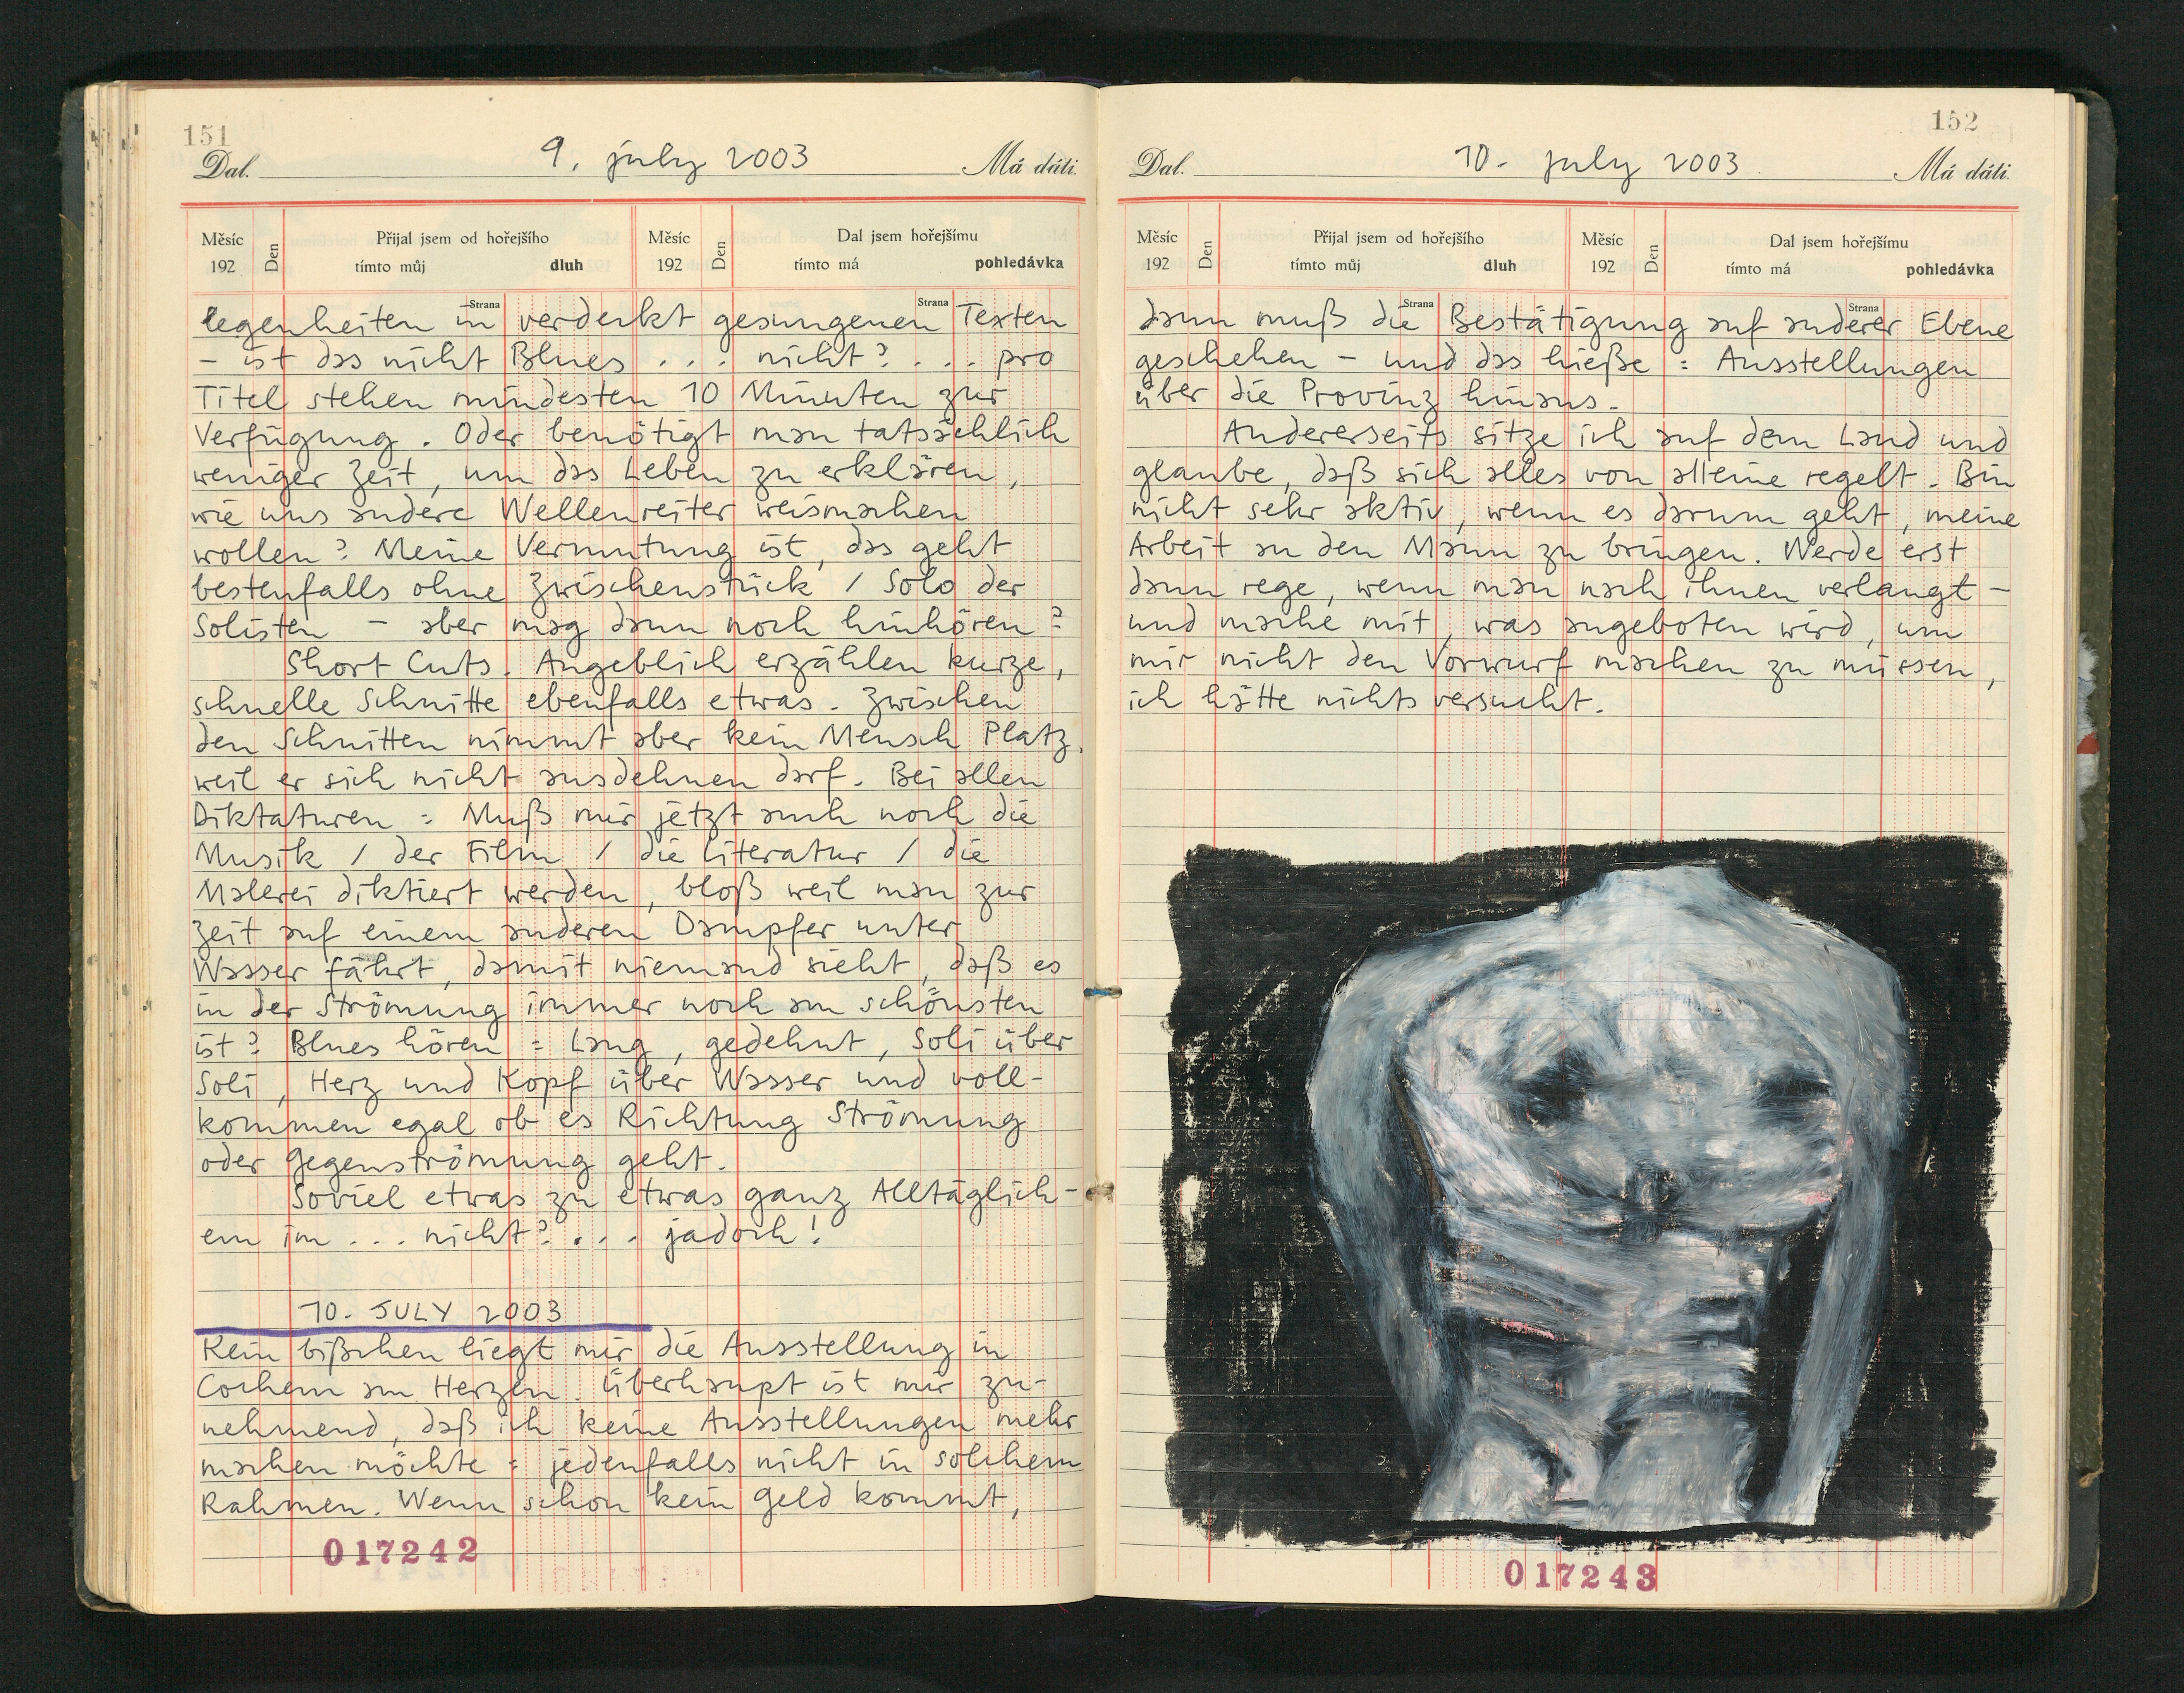 151
9. july 2003
Dal. Má dáti.
Měsíc 192 Den Přijal jsem od hořejšího tímto můj dluh Měsíc 192 Den Dal jsem hořejšímu tímto má pohledávka
Strana Strana
legenheiten in verdeckt gesungenen Texten
– ist das nicht Blues . . . nicht? . . . pro
Titel stehen mindesten 10 Minuten zur
Verfügung. Oder benötigt man tatsächlich
weniger Zeit, um das Leben zu erklären,
wie uns andere Wellenreiter weismachen
wollen? Meine Vermutung ist, das geht
bestenfalls ohne Zwischenstück / Solo der
Solisten – aber mag dann noch hinhören?
Short Cuts. Angeblich erzählen kurze,
schnelle Schnitte ebenfalls etwas. Zwischen
den Schnitten nimmt aber kein Mensch Platz,
weil er sich nicht ausdehnen darf. Bei allen
Diktaturen : Muß mir jetzt auch noch die
Musik / der Film / die Literatur / die
Malerei diktiert werden, bloß weil man zur
Zeit auf einem anderen Dampfer unter
Wasser fährt, damit niemand sieht, daß es
in der Strömung immer noch am schönsten
ist? Blues hören = Lang, gedehnt, Soli über
Soli, Herz und Kopf über Wasser und voll-
kommen egal ob es Richtung Strömung
oder Gegenströmung geht.
Soviel etwas zu etwas ganz Alltäglich-
em im . . . nicht? . . . jadoch!
10. JULY 2003
Kein bißchen liegt mir die Ausstellung in
Cochem am Herzen. Überhaupt ist mir zu-
nehmend, daß ich keine Ausstellungen mehr
machen möchte : jedenfalls nicht in solchem
Rahmen. Wenn schon kein Geld kommt,
017242
152
10. july 2003
Dal. Má dáti.
Měsíc 192 Den Přijal jsem od hořejšího tímto můj dluh Měsíc 192 Den Dal jsem hořejšímu tímto má pohledávka
Strana Strana
dann muß die Bestätigung auf anderer Ebene
geschehen – und das hieße : Ausstellungen
über die Provinz hinaus.
Andererseits sitze ich auf dem Land und
glaube, daß sich alles von alleine regelt. Bin
nicht sehr aktiv, wenn es darum geht, meine
Arbeit an den Mann zu bringen. Werde erst
dann rege, wenn man nach ihnen verlangt –
und mache mit, was angeboten wird, um
mir nicht den Vorwurf machen zu müssen,
ich hätte nichts versucht.
017243